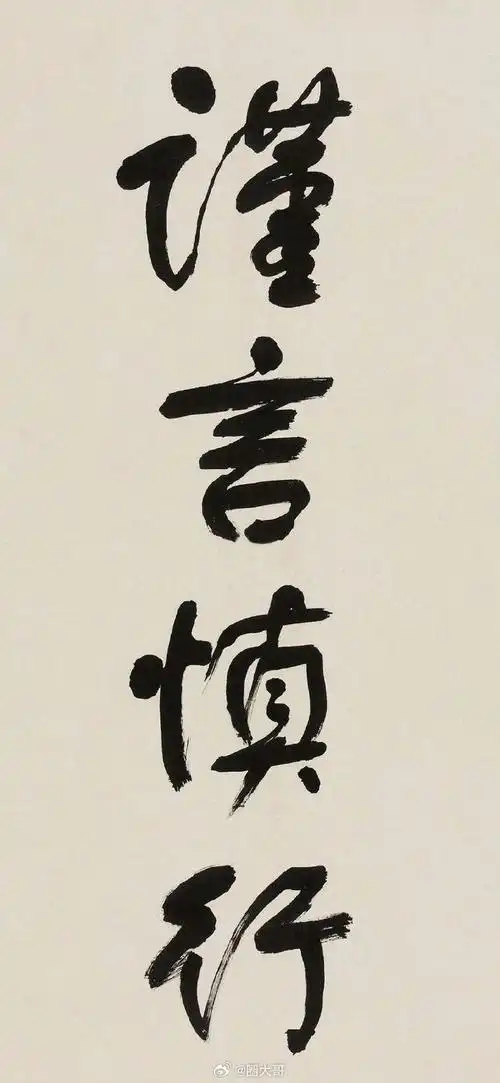 谨言慎行
@圈大哥